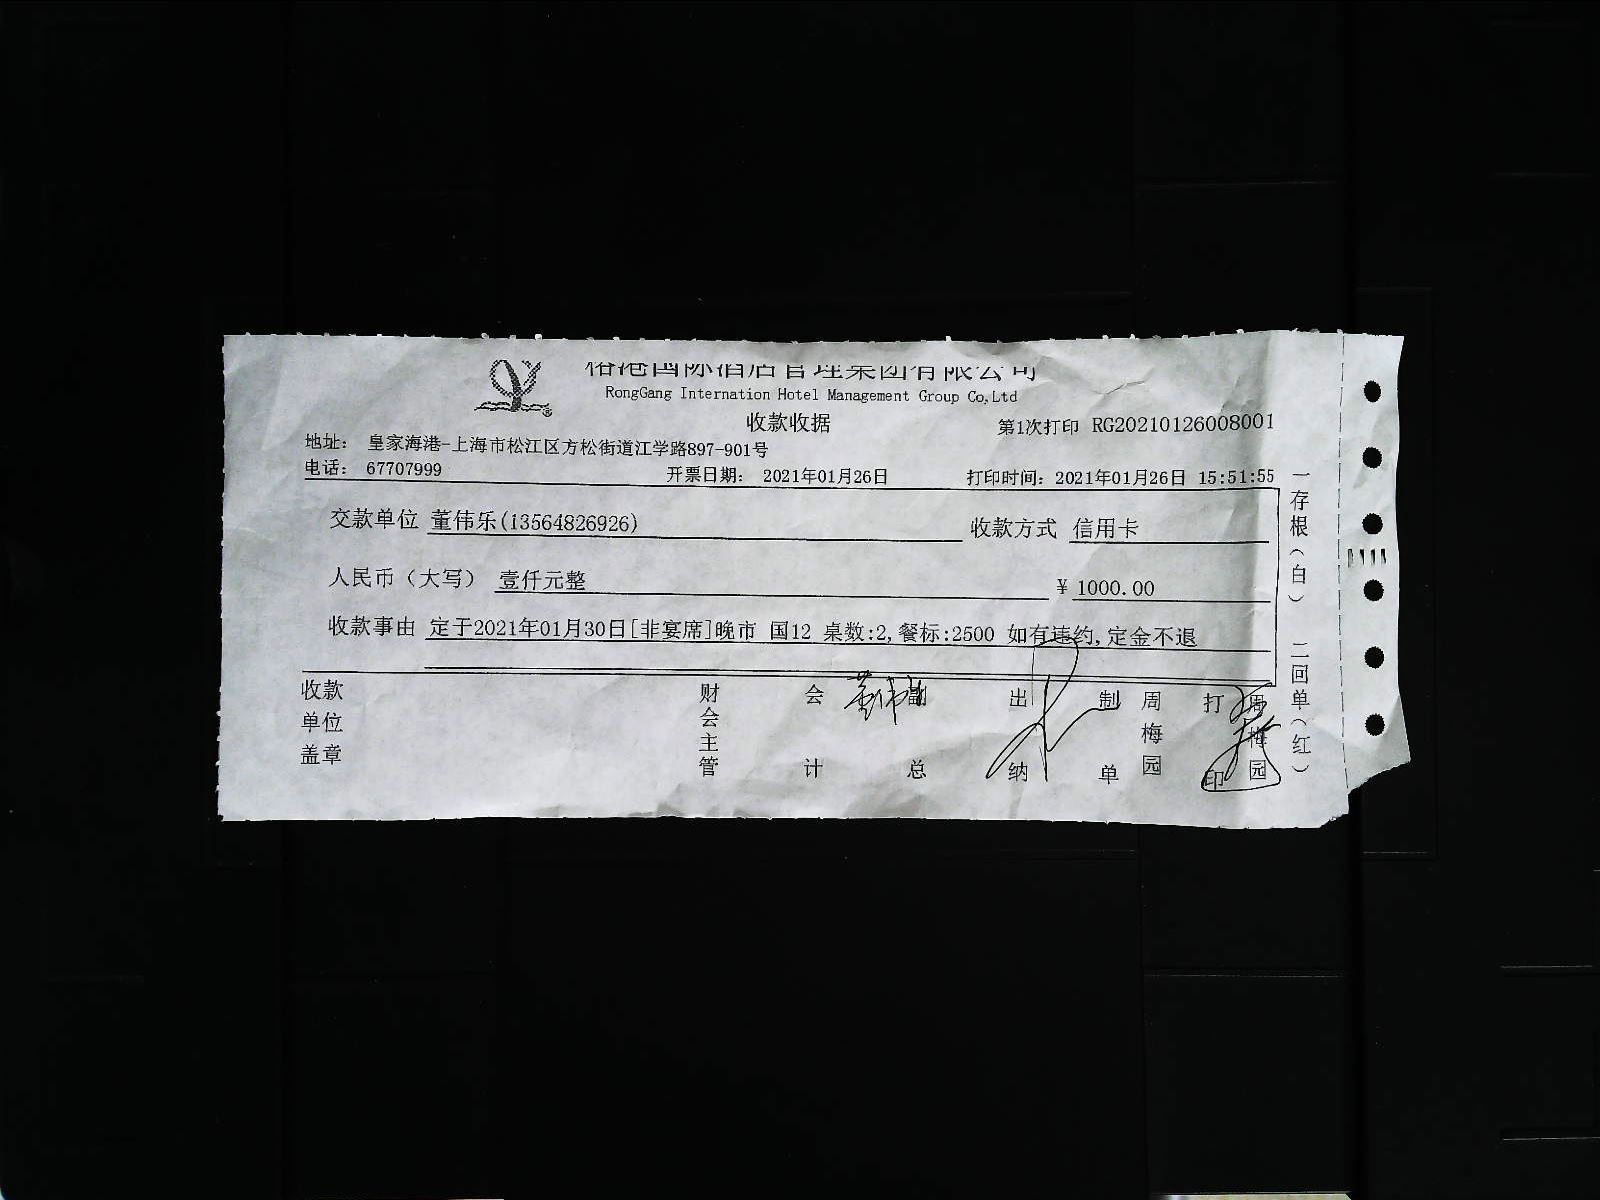 榕港国际酒店管理集团有限公司
RongGang Internation Hotel Management Group Co,Ltd
收款收据
第1次打印 RG20210126008001
地址： 皇家海港-上海市松江区方松街道江学路897-901号
电话： 67707999 开票日期： 2021年01月26日 打印时间：2021年01月26日 15:51:55
交款单位 董伟乐(13564826926) 收款方式 信用卡
人民币（大写） 壹仟元整 ¥ 1000.00
收款事由 定于2021年01月30日[非宴席]晚市 国12 桌数:2,餐标:2500 如有违约,定金不退
收款单位盖章
财会主管
会计
副总
出纳
制单
周梅园
打印
周梅园
一存根（白） 二回单（红）